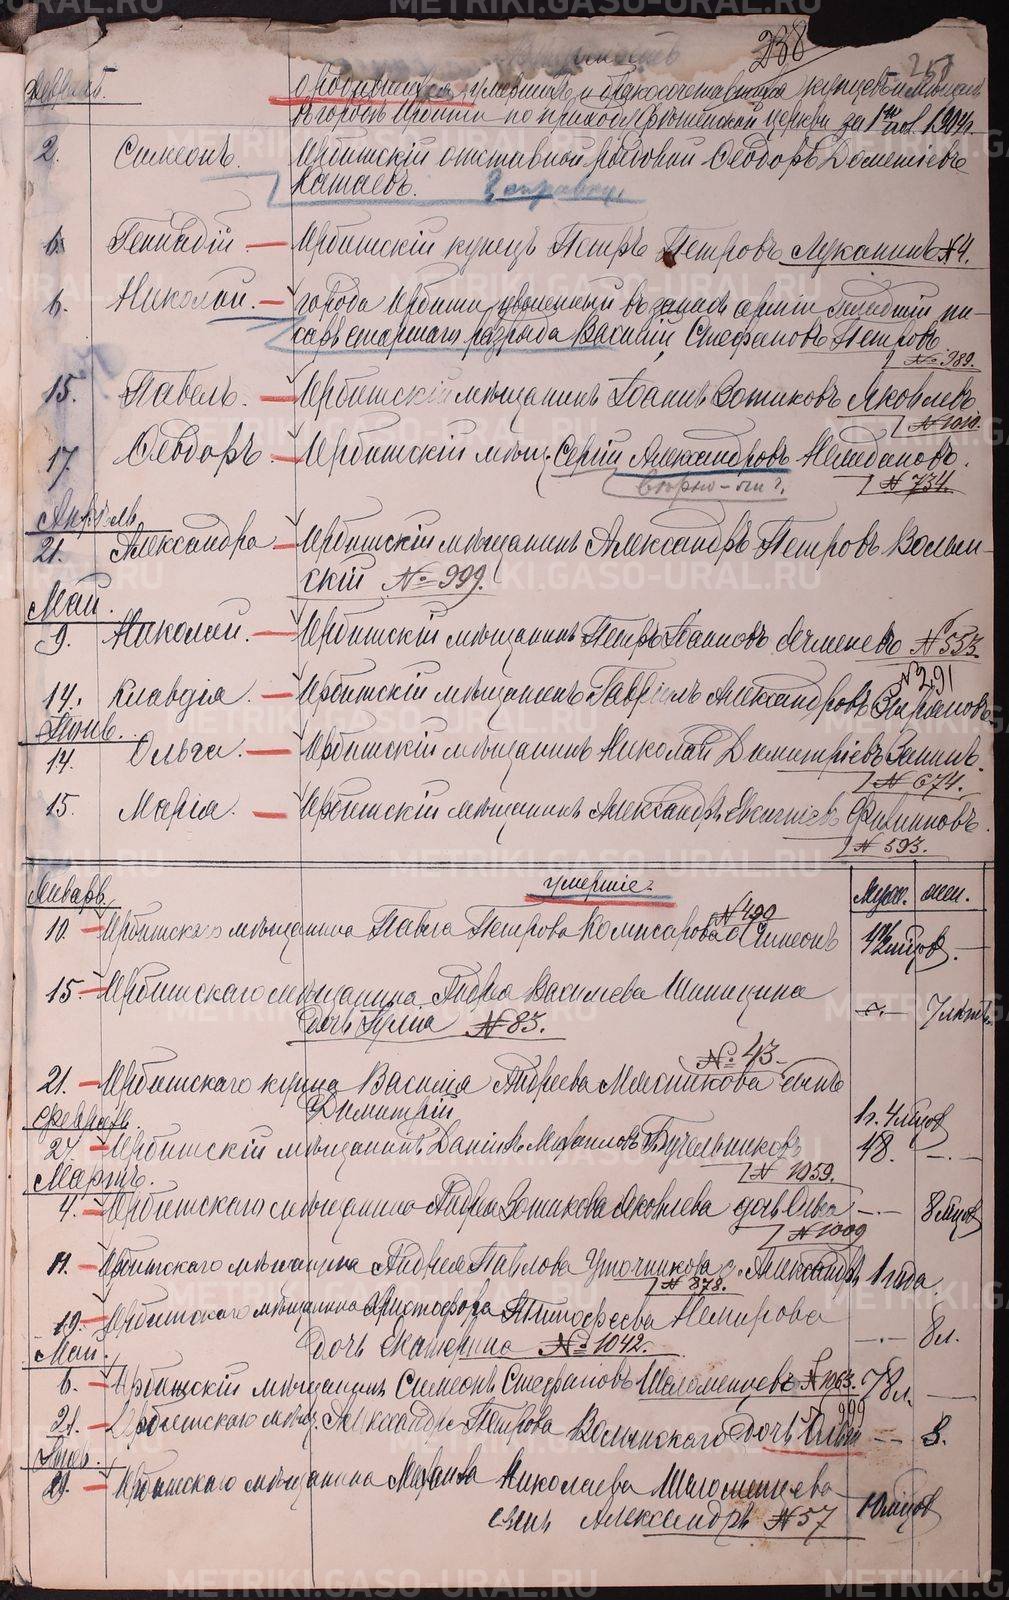 238
257
Февраль.
о родившихся умершихъ и бракосочетавшихся купцовъ и мѣщанъ
города Ирбити по приходу Срѣтенской церкви за 1ю пол. 1904 г.
2. Симеонъ. Ирбитскій отставной рядовой Ѳеодоръ Дометіевъ
Катаевъ. В справку.
6. Геннадій — Ирбитскій купецъ Петръ Петровъ Луканинъ № 4.
6. Николай. — города Ирбити, уволенный въ запасъ арміи младшій пи-
сарь старшаго разряда Василій Стефановъ Петровъ
№ 989.
15. Павелъ. — Ирбитскій мѣщанинъ Іоаннъ Зотиковъ Яковлевъ
№ 1010
17. Ѳеодоръ. — Ирбитскій мѣщ. Сергій Александровъ Челедановъ.
№ 734.
Апрѣль
21. Александра — Ирбитскій мѣщанинъ Александръ Петровъ Волын-
скій № 999.
Май.
9. Николай. — Ирбитскій мѣщанинъ Петръ Іоанновъ Ячменевъ № 553.
№ 291
14. Клавдія — Ирбитскій мѣщанинъ Гавріилъ Александровъ
Іюнь.
14. Ольга. — Ирбитскій мѣщанинъ Николай Димитріевъ Ганинъ.
№ 674.
15. Марія. — Ирбитскій мѣщанинъ Александръ Евгеніевъ Филинновъ.
№ 593.
Январь. умершіе. Муж. жен.
№ 499
10. — Ирбитскаго мѣщанина Павла Петрова Комисарова с. Симеонъ —
15. — Ирбитскаго мѣщанина Андрея Васильева Шипицина
дочь Юлія № 83. — 7 лѣтъ
№ 43.
21. — Ирбитскаго купца Василія Андреева Мясникова сынъ
Димитрій 1 г. 4 мѣсяц
Февраль.
27. — Ирбитскій мѣщанинъ Даніилъ Михаиловъ Бутельниковъ 48. —
№ 1959.
Мартъ.
4. — Ирбитскаго мѣщанина Андрея Зотикова Яковлева дочь — 8 мѣсяц
№ 1009
11. — Ирбитскаго мѣщанина Андрея Павлова Уточникова с. Александръ 1 года
№ 878.
19. — Ирбитскаго мѣщанина Христофора Тимофеева Немирова
дочь Екатерина № 1042. — 8 л.
Май.
6. — Ирбитскій мѣщанинъ Симеонъ Стефановъ Шаломенцевъ № 1063. 78 л. —
№ 999
21. — Ирбитскаго мѣщ. Александра Петрова Волынскаго дочь —
Іюнь.
29. — Ирбитскаго мѣщанина Михаила Николаева Шаломенцева
сынъ Александръ № 57 10 мѣсяцов
METRIKI.GASO-URAL.RU